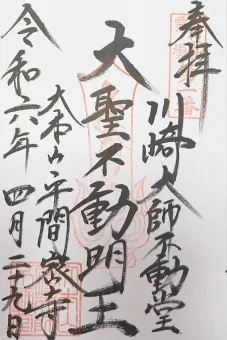 奉拝
川崎大師不動堂
大聖不動明王
大本山平間寺
令和六年四月二十九日